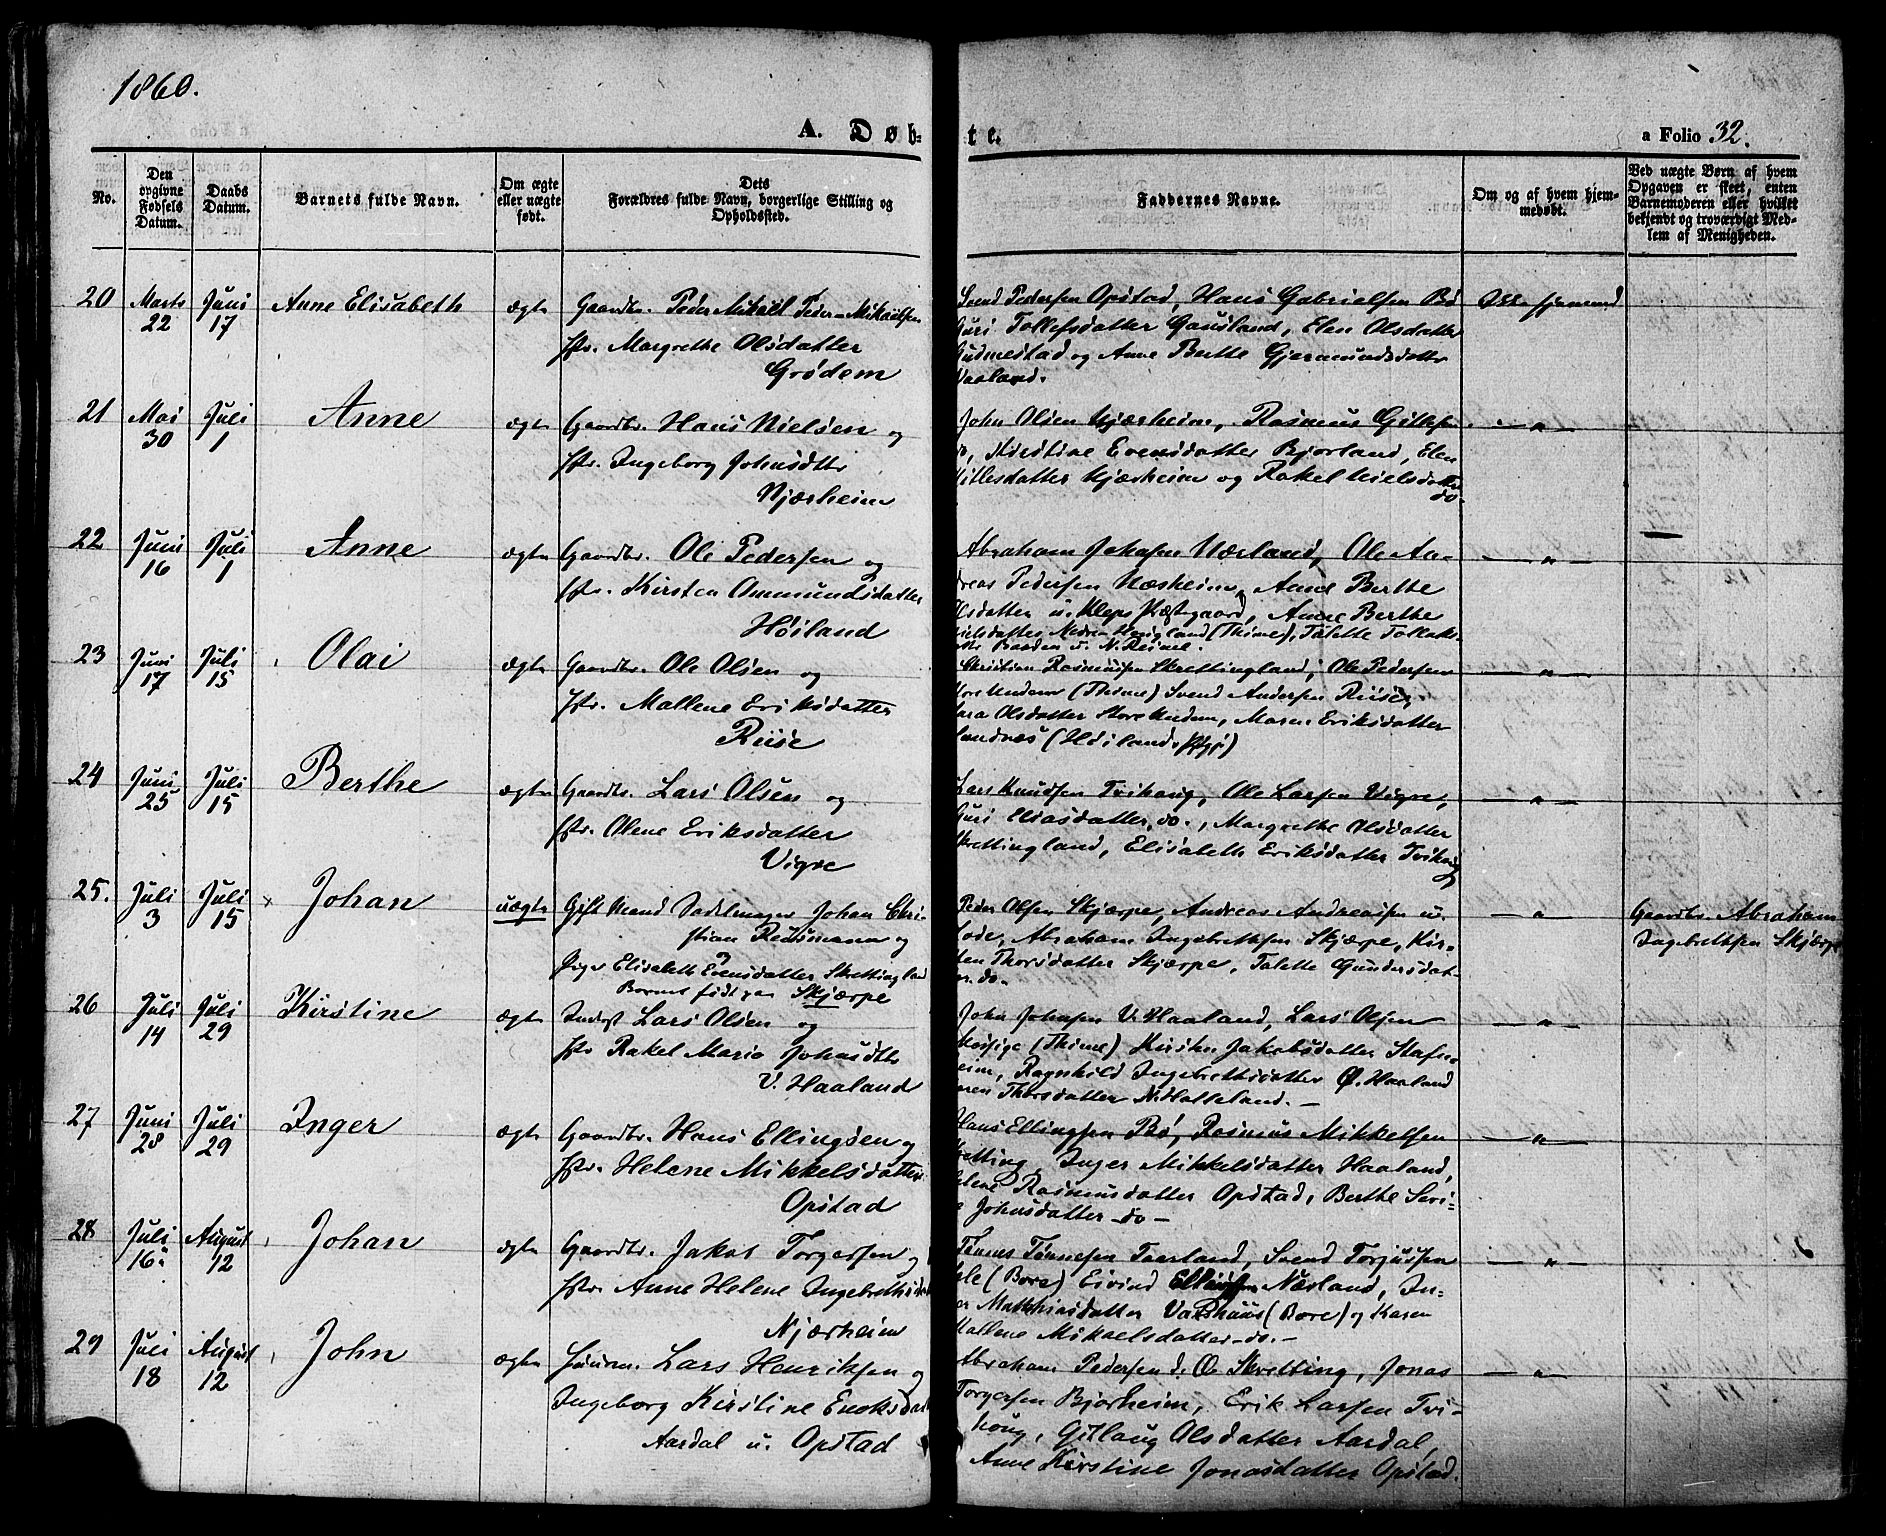 1860.
A. Døb-
te.
a Folio 32.
No.
Den opgivne Fødsels Datum.
Daabs Datum.
Barnets fulde Navn.
Om ægte eller uægte født.
Dets Forældres fulde Navn, borgerlige Stilling og Opholdssted.
Faddernes Navne.
Om og af hvem hjemmedøbt.
Ved uægte Børn af hvem Opgaven er skeet, enten Barnemoderen eller hvilket bekjendt og troværdigt Medlem af Menigheden.
20 Marts 22 Juni 17 Anne Elisabeth ægte Gaardbr. Peder Mikael Peder Mikaelsen
Hstr. Margrethe Olsdatter
Grødem
Svend Pedersen Opstad, Hans Gabrielsen Bø
Guri Tollefsdatter Gausland, Elen Olsdatter
Gudmestad og Anne Berthe Gjermundsdatter
Vaaland.
Ikke hjemmed
21 Mai 30 Juli 1 Anne ægte Gaardbr. Hans Nielsen og
Hstr. Ingeborg Johnsdttr
Njærheim
John Olsen Njærheim, Rasmus Gitlesen
do, Kirstine Evensdatter Bjorland, Elen
Gitlesdatter Njærheim og Rakel Nielsdatter
do.
— " —
22 Juni 16 Juli 1 Anne ægte Gaardbr. Ole Pedersen og
Hstr. Kirsten Ommundsdatter
Høiland
Abraham Johnsen Nærland, Ole An-
dreas Pedersen Næsheim, Anne Berthe
Olsdatter u. Kleps Præstegaard, Anne Berthe
Nielsdatter Nedre Haugland (Thime), Talette Tollaks-
u. N. Reime.
— " —
23 Juni 17 Juli 15 Olai ægte Gaardbr. Ole Olsen og
Hstr. Mallene Eriksdatter
Riise
Christian Rasmussen Skrettingland, Ole Pedersen
Store Undem (Thime) Svend Andersen Riise,
Olsdatter Store Undem, Maren Eriksdatter
(Høilands Pgj)
— " —
24 Juni 25 Juli 15 Berthe ægte Gaardbr. Lars Olsen og
Hstr. Olene Eriksdatter
Vigre
Lars Knudsen Tvihaug, Ole Larsen Vigre,
Guri Eliasdatter do., Margrethe Olsdatter
Skrettingland, Elisabeth Eriksdatter Tvihaug
— " —
25. Juli 3 Juli 15 Johan uægte Gift Mand Sadelmager Johan Chri-
stian Reismann og
Pige Elisabeth Evensdatter Skrettingland
Barnet født paa Skjærpe
Peder Olsen Skjærpe, Andreas Andreassen u.
Lode, Abraham Ingebrethsen Skjærpe, Kir-
sten Thorsdatter Skjærpe, Talette Gundersdat-
ter do.
— " —
Gaardbr. Abraham
Ingebrethsen Skjærpe
26 Juli 14 Juli 29 Kirstine ægte Inderst Lars Olsen og
Hstr Rakel Maria Johnsdttr
V. Haaland
John Johnsen V. Haaland, Lars Olsen
(Thime) Kirsten Jakobsdatter Stafn-
heim, Ragnhild Ingebrethsdatter Ø. Haaland
Karen Thorsdatter N. Halleland. —
— " —
27 Juni 28 Juli 29 Inger ægte Gaardbr. Hans Ellingsen og
Hstr. Helene Mikkelsdatter
Opstad
Hans Ellingsen Bø, Rasmus Mikkelsen
Skretting, Inger Mikkelsdatter Haaland,
Helene Rasmusdatter Opstad, Berthe Seri-
ne Johnsdatter — do —
— " —
28 Juli 16 August 12 Johan ægte Gaardbr. Jakob Torgersen og
Hstr. Anne Helene Ingebrethsdat
Njærheim
Tønnes Tønnesen Taarland, Svend Torjussen
(Bore) Eivind Ellingsen Nærland, In-
ger Mathiasdatter Vashuus (Bore) og Karen
Mallene Mikaelsdatter — do. —
— " —
29 Juli 18 August 12 John ægte Huusm. Lars Henriksen og
Ingeborg Kirstine Enoksdat
Aardal u. Opstad
Abraham Pedersen d. Æ. Skretting, Jonas
Torgersen Bjorheim, Erik Larsen Tvi-
houg, Gitlaug Olsdatter Aardal,
Anne Kirstine Jonasdatter Opstad.
— " —